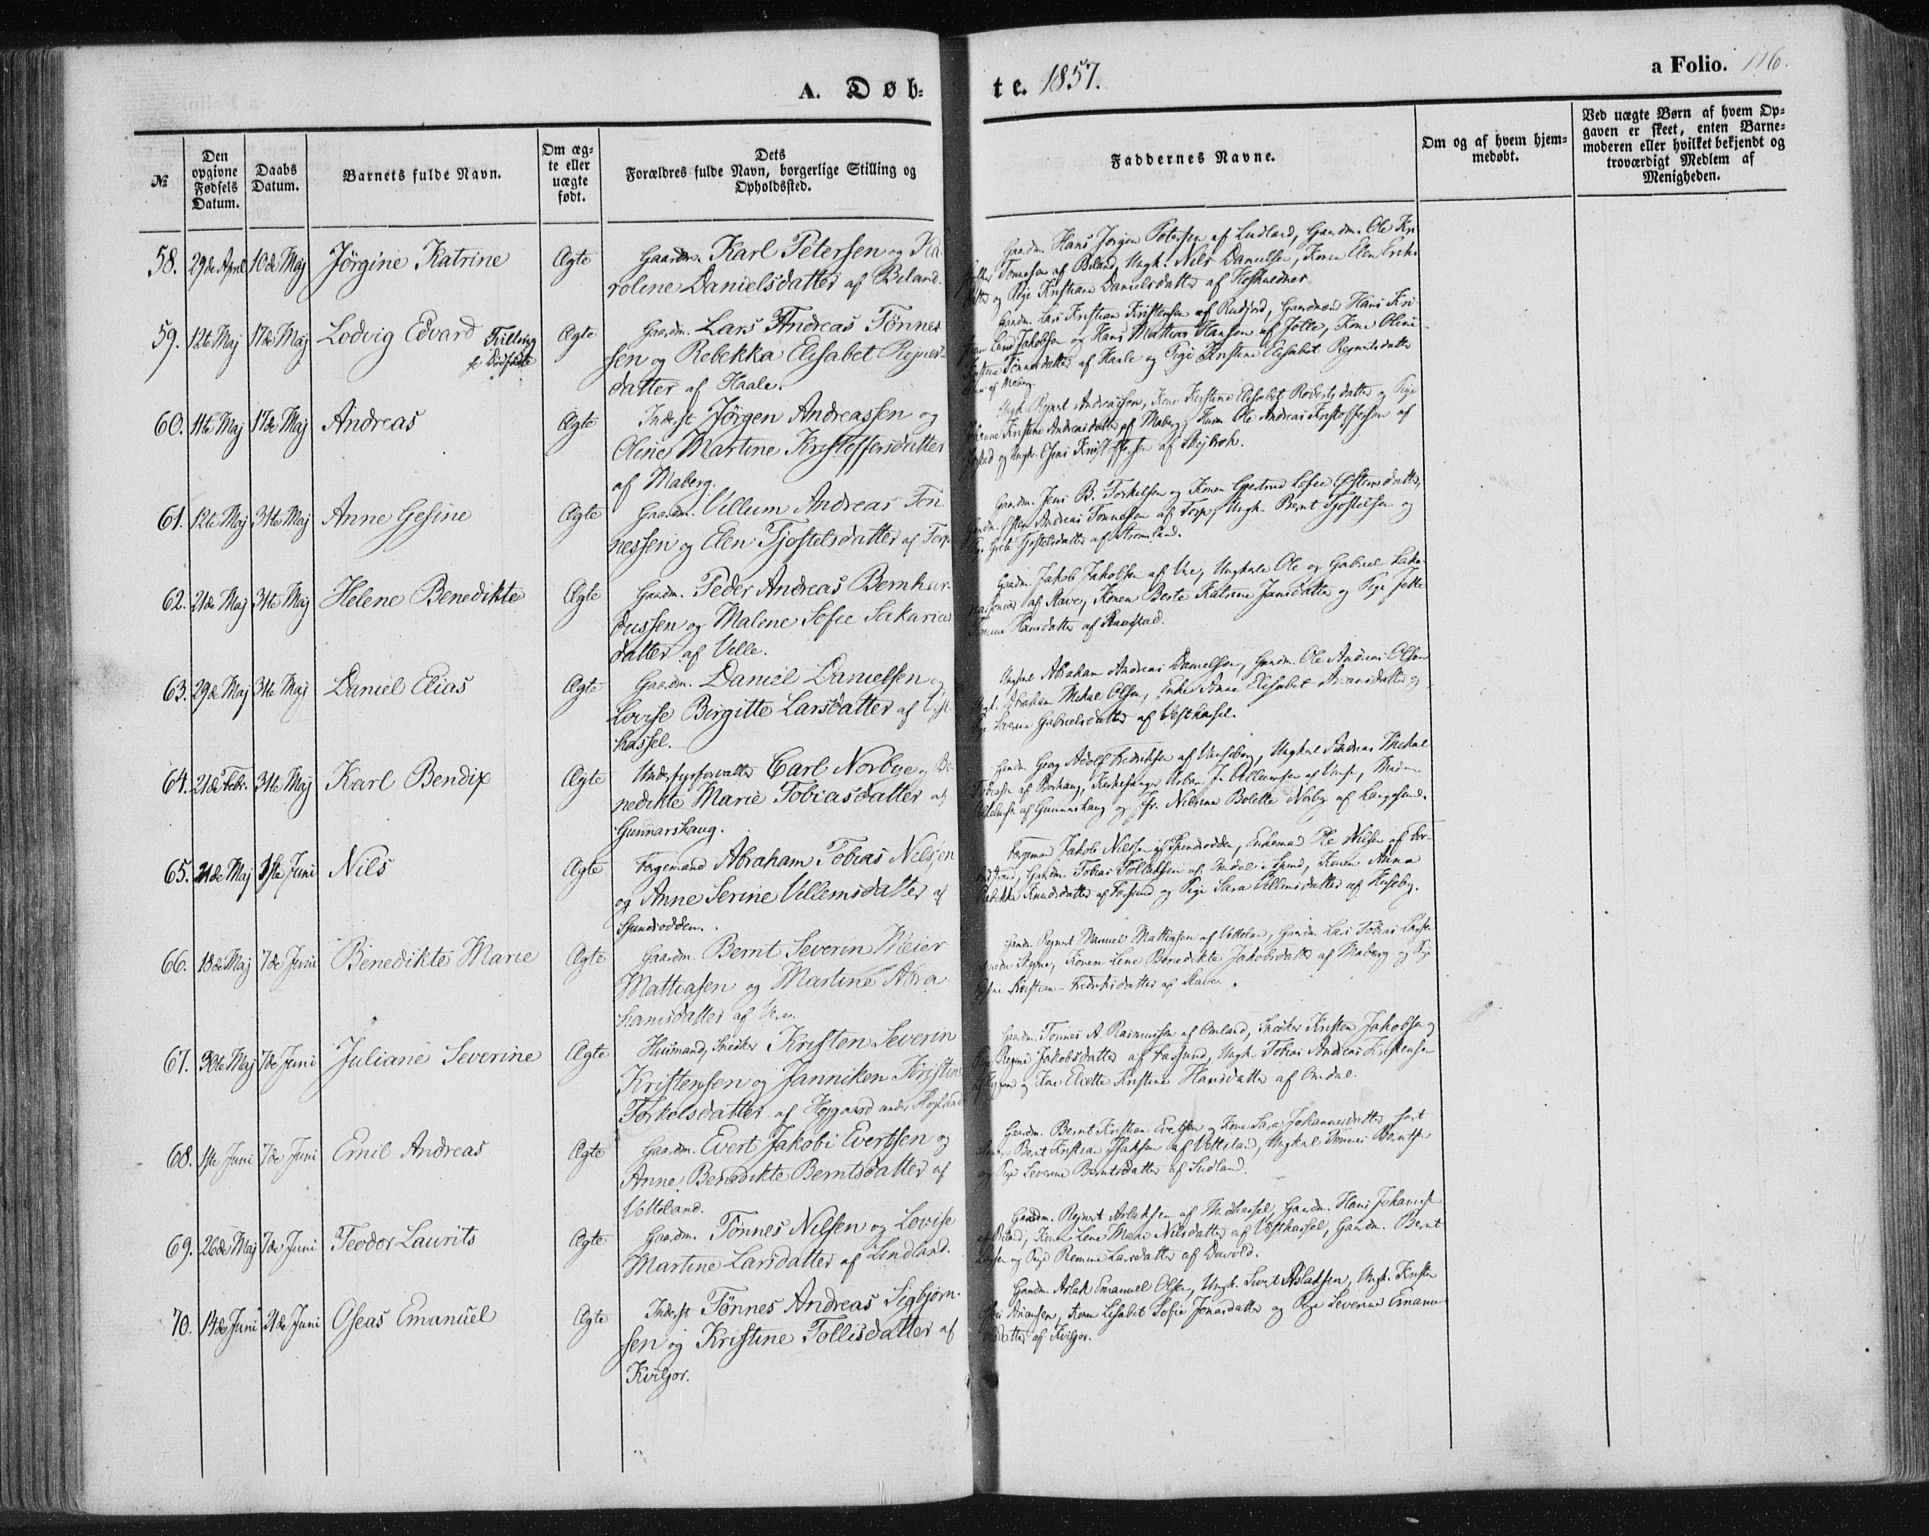 A. Døb-
te. 1857.
a Folio. 116.
№
Den opgivne Fødsels Datum.
Daabs Datum.
Barnets fulde Navn.
Om æg-
te eller
uægte
født.
Dets
Forældres fulde Navn, borgerlige Stilling og
Opholdssted.
Faddernes Navne.
Om og af hvem hjem-
medøbt.
Ved uægte Børn af hvem Op-
gaven er skeet, enten Barne-
moderen eller hvilket bekjendt og
troværdigt Medlem af
Menigheden.
58. 29de April 10de Maj Jørgine Katrine Ægte Gaardm. Karl Petersen og Ka
rolene Danielsdatter af Biland.
Gaardm. Hans Jørgen Petersen af Ludland, Gaardm. Ole Kri
Tønnesen af Biland, Ungk. Nils Danielsen, Konen Elen Eriks
og Pige Kristiane Danielsdatter af
59. 12te Maj 17de Maj Lodvig Edvard Tvilling Ægte Gaardm. Lars Andreas Tønnes
sen og Rebekka Elisabet Rejnerts
datter af Haale.
Gaardm. Lars Kristian Kristensen af Rudjord, Gaardmænd Hans Kri
Jakobsen og Hans Mathias Hansen af Jolle, Kone Oline
Tønnesdatter af Haale og Pige Kristine Elisabet Rejnertsdatter
af Maberg.
60. 11te Maj 17de Maj Andreas Ægte Inderst Jørgen Andreassen og
Oline Martine Kristoffersdatter
af Maberg.
Ungk. Rejnert Andreassen, Konen Kirstine Elisabet Robertsdatter og Pige
Kristine Andreasdatter af Maberg, Husm. Ole Andreas Kristoffersen af
og Ungk. Kristoffersen af Skejbrok.
61. 12te Maj 31te Maj Anne Gesine Ægte Gaardm. Villum Andreas Tøn
nessen og Elen Tjøstelsdatter af Torp
Gaardm. Jens B. Torkelsen og Konen Gjertrud Sofie Østensdatter,
Gaardm. Østen Andreas Tønnesen af Torp, Ungk. Bernt Tjøstelsen og
Pige Grete Tjøstelsdatter af Strømland.
62. 21de Maj 31te Maj Helene Benedikte Ægte Gaardm. Peder Andreas Bernhar
dussen og Malene Sofie Sakarias
datter af Velle.
Gaardm. Jakob Jakobsen af Vee, Ungkarle Ole og Gabriel Saka
af Rave, Konen Berte Katrine Jansdatter og Pige
Hansdatter af Raustad.
63. 29de Maj 31te Maj Daniel Elias Ægte Gaardm. Daniel Danielsen og
Lovise Birgitte Larsdatter af Vest
hassel.
Ungkarl Abraham Andreas Danielsen, Gaardm. Ole Andreas Olsen
Ungk. Abraham Mikal Olsen, Enke Anne Elisabet Arensdatter og
Pige Gabrielsdatter af Vesthassel.
64. 21de Febr. 31te Maj Karl Bendix Ægte Underfyrforvalter Carl Norbye og Be
nedikte Marie Tobiasdatter af
Gunnarshaug.
Gaardm. Georg Adolf Fredriksen af Vanseborg, Ungkarl Andreas Mikal
Tobiasen af Borhaug, Kirkesanger Urban J. Villumsen af Vanse,
af Gunnarshaug og Nilsine Bolette Norby af Langesund.
65. 21de Maj 1ste Juni Nils Ægte Færgemand Abraham Tobias Nilssen
og Anne Serine Villemsdatter af
Spindsodden.
Færgemand Jakob Nilssen af Spindsodden, Enkemand Ole Nilsen af
Gaardm. Tobias Tollaksen af Omdal i Spind, Konen Anna
Rebekka Knudsdatter af Farsund og Pige Sara Villumsdatter af Huseby.
66. 18de Maj 7de Juni Benedikte Marie Ægte Gaardm. Bernt Severin Meier
Mathiasen og Martine Abra
hamsdatter af Vee.
Gaardm. Rejnert Manuel Mathiasen af Vatteland, Gaardm. Lars Tobias Larsen
Konen Lene Benedikte Jakobsdatter af Maberg og Pige
Kristiane Fredriksdatter af Rave.
67. 30te Maj 7de Juni Juliane Severine Ægte Husmand, Snedker Kristen Severin
Kristensen og Janniken Kristine
Torkelsdatter af Højgaard under Højland
Gaardm. Tønnes A. Rasmussen af Omland, Snedker Kristen Jakobsen og
Pige Regine Jakobsdatter af Farsund, Ungk. Tobias Andreas Kristensen
og Kone Elvette Kristine Hansdatter af Omdal.
68. 1ste Juni 7de Juni Emil Andreas Ægte Gaardm. Evert Jakobi Evertsen og
Anne Benedikte Berntsdatter af
Vatteland.
Gaardm. Bernt Kristian Evertsen og Kone Sara Johannesdatter samt
Bernt Kristian Isaksen af Vatteland, Ungkarl Tønnes Berntsen
og Pige Severine Berntsdatter af Sudland.
69. 26de Maj 7de Juni Teodor Laurits Ægte Gaardm. Tønnes Nilsen og Lovise
Martine Larsdatter af Lindland.
Gaardm. Rejnert Aslaksen af Midhassel, Gaardm. Hans Johannesen
Kone Lene Marie Nilsdatter af Vesthassel, Gaardm. Bernt
Larsen og Pige Larsdatter af Duvold.
70. 14de Juni 21de Juni Oseas Emanuel Ægte Inderst Tønnes Andreas Segbjørn-
sen og Kristine Tollisdatter af
Kviljor.
Gaardm. Aslak Emanuel Olsen, Ungk. Sivert Aslaksen, Ungk. Kristen
Kone Lisabet Sofie Jonasdatter og Pige Severine Emanu
datter af Kviljor.